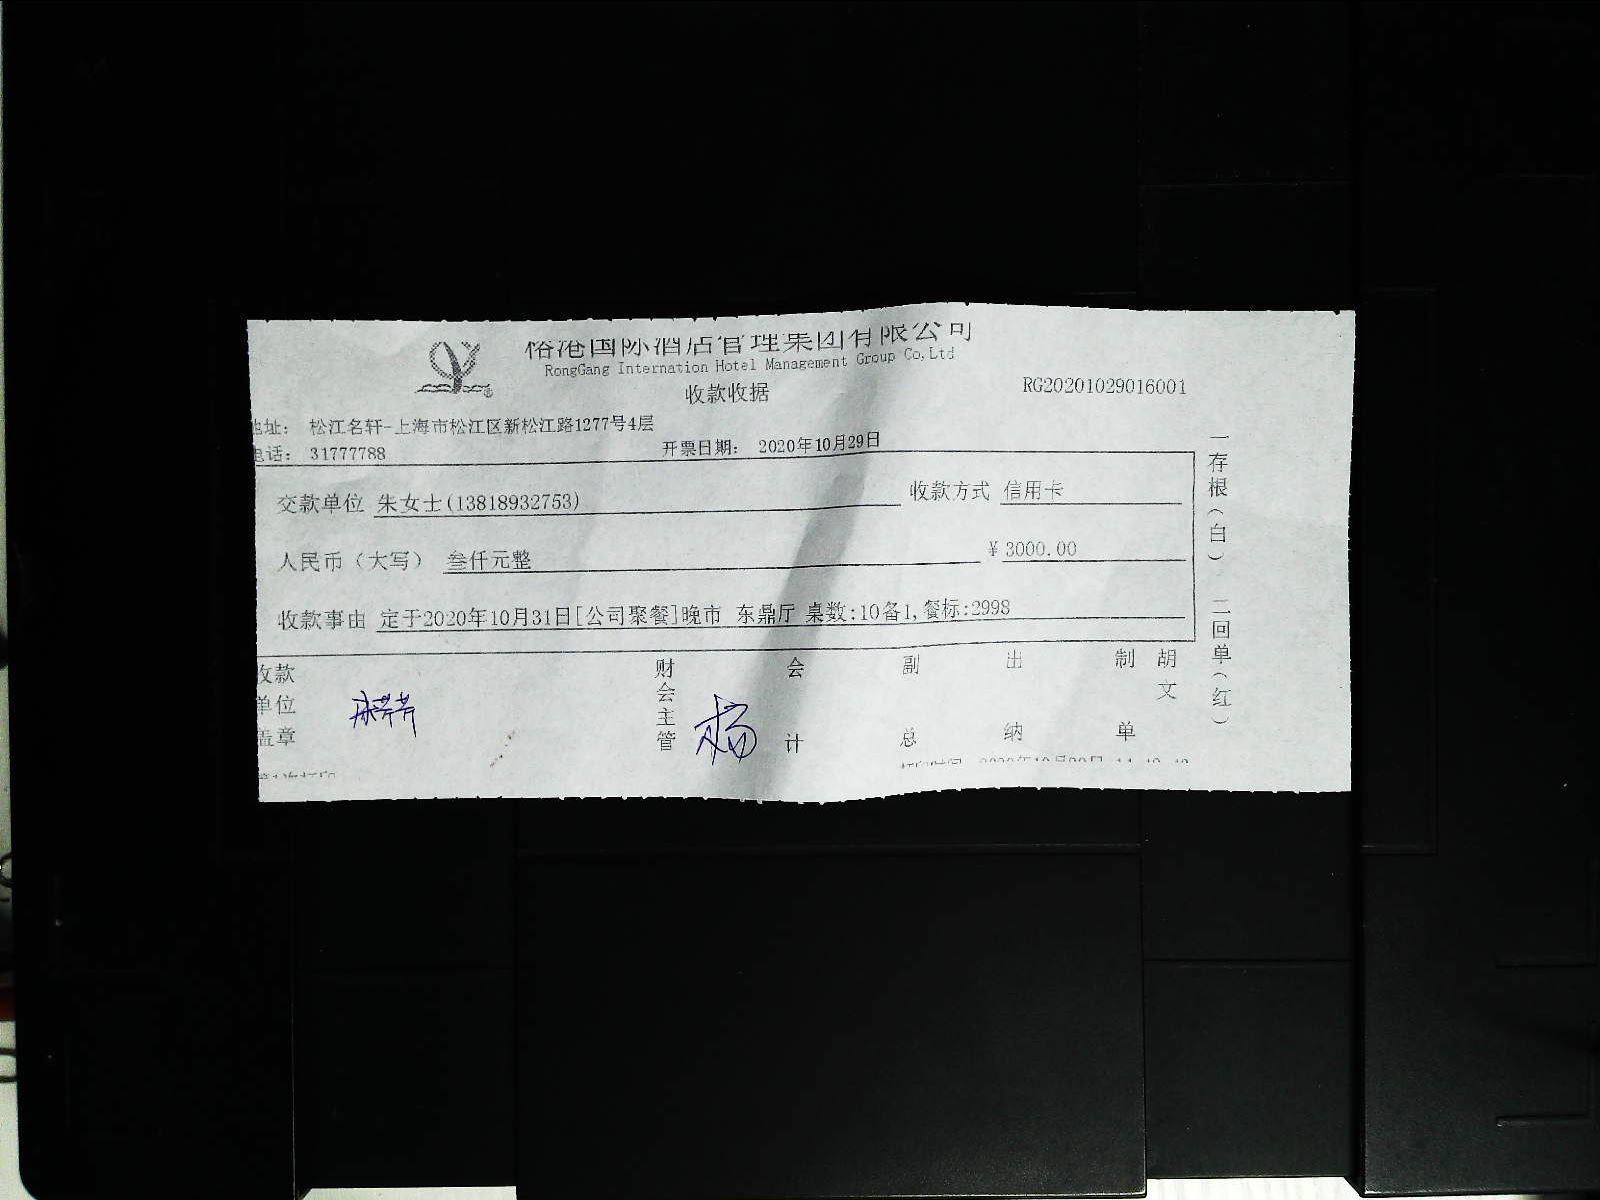 国际酒店管理集团有限公司
RongGang Internation Hotel Management Group Co,Ltd
收款收据
RG20201029016001
地址： 松江名轩-上海市松江区新松江路1277号4层
电话： 31777788
开票日期： 2020年10月29日
交款单位 朱女士(13818932753)
收款方式 信用卡
人民币（大写） 叁仟元整
￥3000.00
收款事由 定于2020年10月31日[公司聚餐]晚市 东鼎厅 桌数:10备1,餐标:2998
收款单位盖章
财会主管
杨
会计
副总
出纳
制单
胡文
一存根（白） 二回单（红）